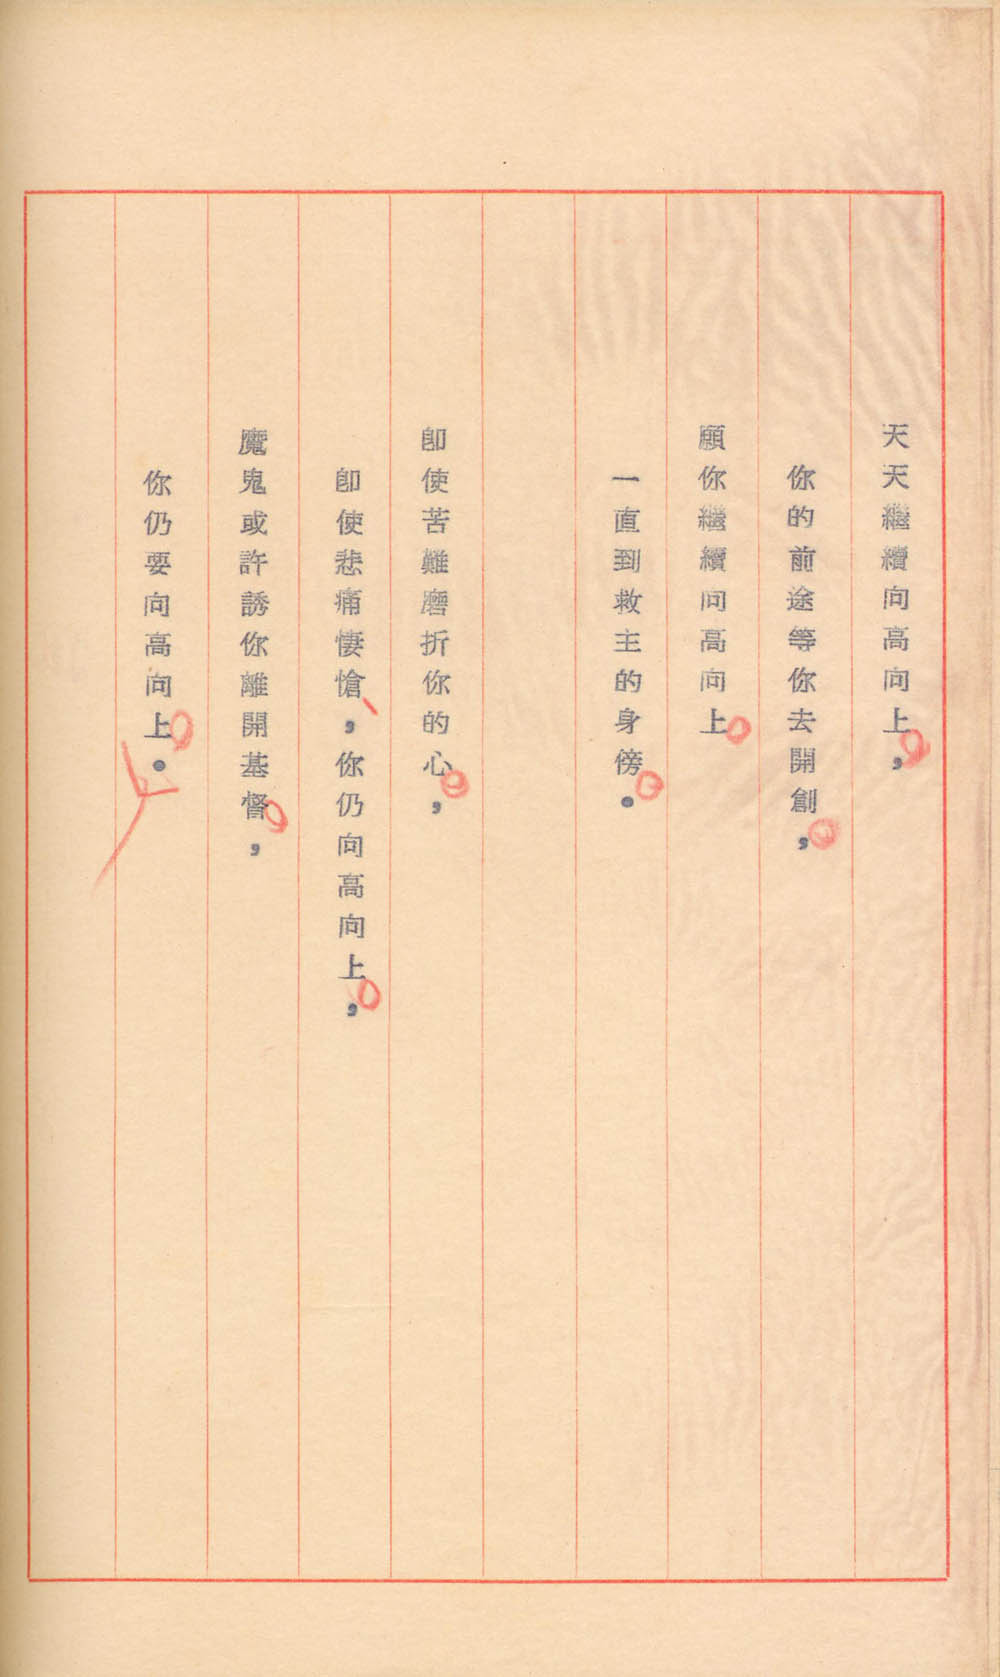 天天繼續向高向上，
你的前途等你去開創，
願你繼續向高向上
一直到救主的身傍．
即使苦難磨折你的心，
即使悲痛悽愴，你仍向高向上，
魔鬼或許誘你離開基督，
你仍要向高向上．